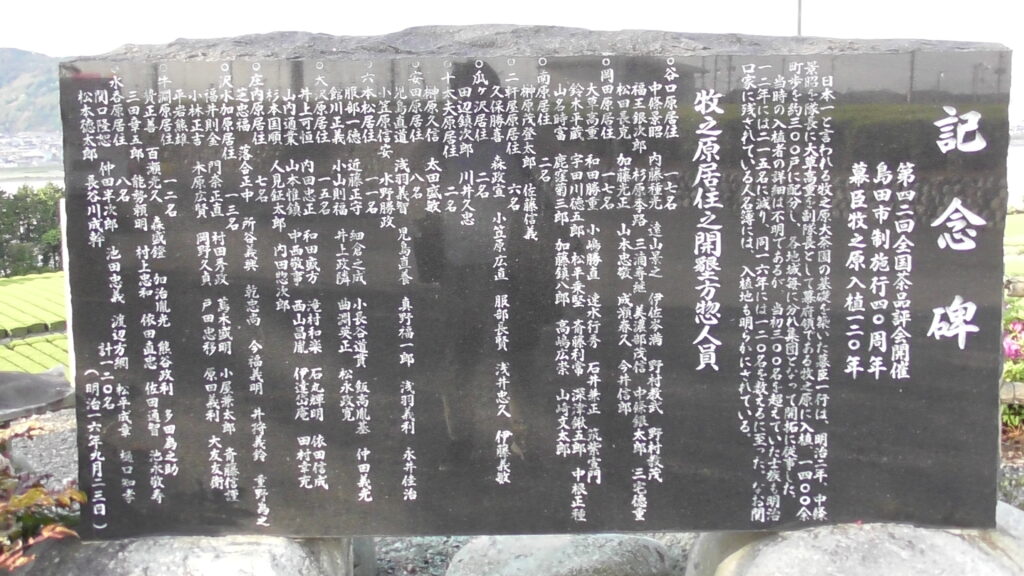 記念碑
第四二回全国茶品評会開催
島田市制施行四〇周年
幕臣牧之原入植一二〇年
日本一といわれる牧之原大茶園の基礎を築いた幕臣一行は、明治二年、中條
景昭を隊長に大草高重を副隊長として幕府領であった牧之原に入植、一、四〇〇余
町歩を約三〇〇戸に配分し、各地域毎に分れ集団となって開拓に従事した。
当時の入植者の詳細は不明であるが、当初三〇〇名を超えていた士族も明治
一二年には二一五名に減り、同一六年には一二〇名を数えるに至った。なお関
口家に残されている人名簿には、入植地も明らかにされている。
牧之原居住之開墾方惣人員
○谷口原居住 一七名
中條景昭 内藤種光 遠山景之 伊佐岑満 野村義武 野村義茂
福王銀次郎 杉原季路 三浦専継 美濃部茂信 中根銀太郎 三宅盛重
松田長克 加藤光正 山本忠敬 成瀬春久 今井信郎
○岡田原居住 一七名
大草高重 和田勝重 小嶋勝直 速水行秀 石井兼正
鈴木平蔵 宇田川徳五郎 松平乗堅 斎藤利常 深津厳五郎 中根正種
山名時富 鹿窪菊三郎 加藤鎮八郎 高嶋広宗 山崎又太郎
○南原居住 二名
榊原茂登太郎 佐藤信義
○二軒屋原居住 六名
久保勝喜 森政宣 小笠原広直 服部長賢 浅井忠久 伊藤義敏
○瓜ヶ沢居住 二名
田辺鎮次郎 川井久忠
○十太夫原居住 二名
榊原久信 太田盛敏
○安田原居住 八名
児島直道 浅羽義智 児島直養 真野福一郎 浅羽義利 永井佳治
小笠原信安 水野勝政
○六本松居住 一名
服部一徳
○大沢原居住 一五名
館川正義 小山則福 井上定璘 曲渕安正 松永政寛
井上可恒 内田忠正 和田盛芳 滝村和楽 石丸輝明 依田信成
山内道業 山本惟鎮 中西政寧 西山昌胤 伊達忠庵 田村幸充
杉本国順 人見鉱太郎 内田忠太郎
○庄内原居住 七名
芝忠福 落合正中 所谷義寮 乾志高 今福義明
○沢水加原居住 一三名
福井則金 門奈正直 村田秀政 萬年盛明 小尾兼太郎 斎藤信謹
小林正吉 木原広賢 岡野久貞 戸田忠彭 原田義利 大友友衛
平岩熊録
○牛開原居住 一一名
百瀬光久 森盛鎧 加治胤光 熊谷政利 多田為之助
貲正喜 能勢頼明 村上忠和 依田直忠 佐田通智 池永政寿
三田幸五郎
○水呑原居住 八名
関口隆忠 仲田半次郎 池田忠義 渡辺方綱
松本徳太郎 長谷川成幹
計一一〇名
(明治一六年九月二三日)